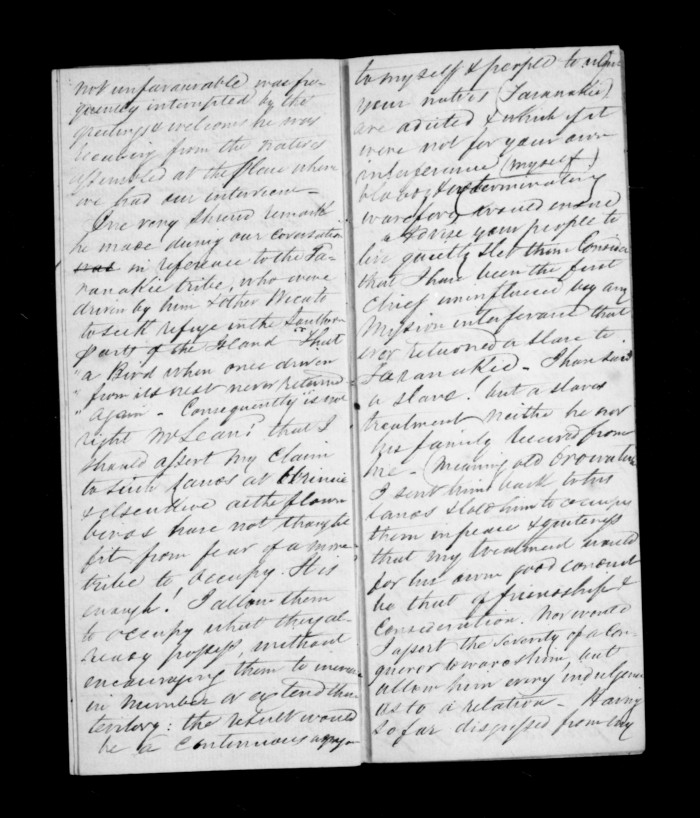 not unfavourable was fre-
quently interrupted by the
greetings & welcome he was
receiving from the natives
assembled at the place where
we had our interview -
One very shrewd remark
he made during our coversation
was in reference to the Ta-
ranakie tribe, who were
driven by him & other Wicato
to seek refuge in the Southern
parts of the Island - "That
"a Bird when once driven
"from its nest never returned
"again - Consequently is not
right McLean? that I
should assert my claim
to such lands at
& elsewhere as the flown
birds have not thought
fit from fear of a more
tribe to occupy. It is
enough! I allow them
to occupy what they al-
ready possess, without
encouraging them to increase
in number or extend their
teritory: the result would
be a continuous
to myself & people to whom
your natives (Taranakie)
are adicted & which if it
were not for your own
interference (myself)
bloody & exterminating
warefare would ensue
advise your people to
live quietly & let them Consider
that I have been the first
Chief uninfluenced by any
Mission interferance that
ever returned a slave to
Taranakie - I have said
a slave! but a slaves
treatment neithe he nor
his family received from
me - (meaning old
I sent him back to his
lands & told him to occupy
them in peace & quietness
that my treatment would
for his own good conduct
be that of friendship &
Consideration. Nor would
I assert the severity of a Con-
queror towards him, but
allow him every indulgence
as to a relation - Having
so far digressed from my